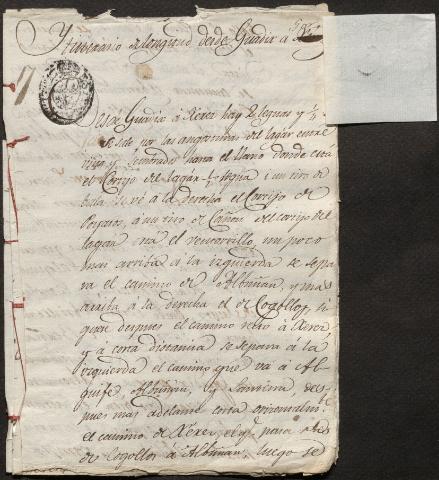 Ytinerario de longitud desde Guadix à
Desde Guadix à Xerez hay 2 leguas y 1/2
se sale por las angosturas del lagar entre
viñas y sembrados hasta el llano donde está
el Cortijo del lagar 1 legua i un tiro de
bala se vé a la derecha el Cortijo de
à un tiro de Cañon del cortijo del
lagar está el ventorrillo, un poco
mas arriba à la izquierda se sepa
ra el camino de Albuñan, y mas
arriba à la derecha el de Cogollos, si
gue despues el camino recto à Xerez
y à corta distancia se separa à la
izquierda el camino que va à Al
quife, Aldeyra, y Lanteira des
pues mas adelante corta
el camino de Xerez, el q.e pasa
de Cogollos à Albuñan, luego se